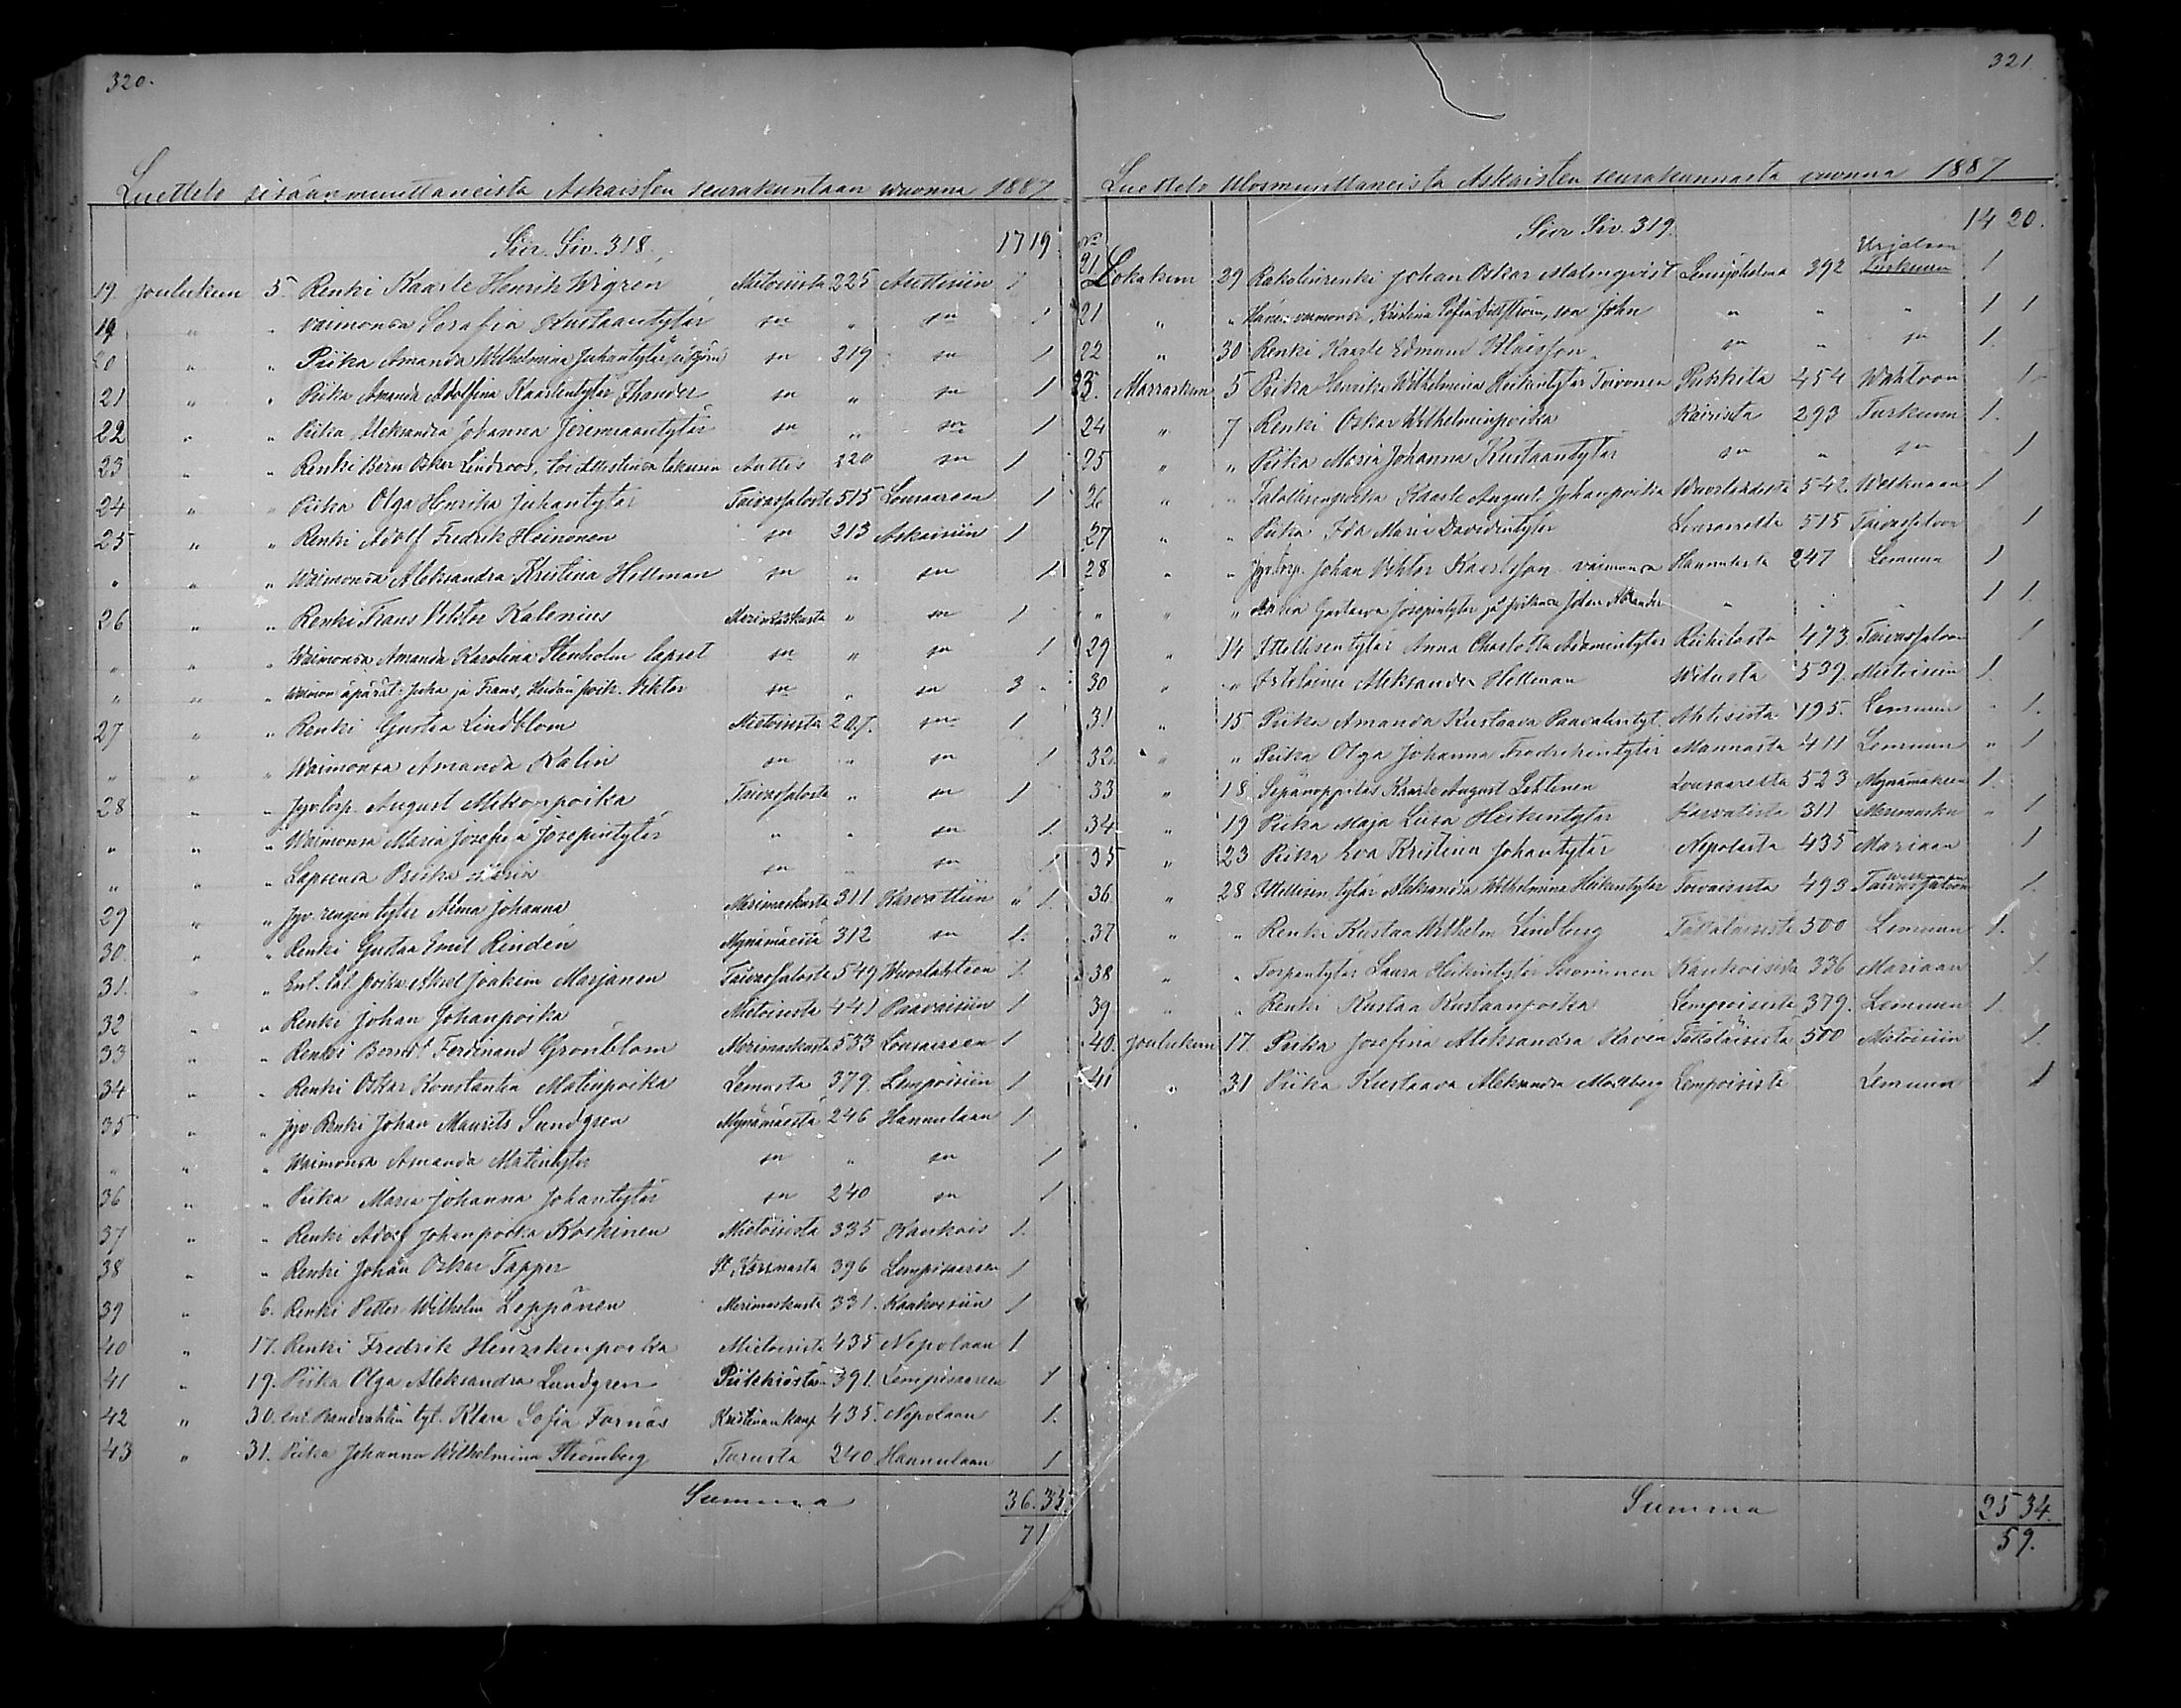 320.
Luettelo sisäänmuuttaneista Askaisten seurakuntaan vuonna 1887
Siir. Siv. 318. 17 19.
19. Joulukun 5. Renki Kaarle Henrik Wigren Mietoisista 225 Auttisiin 1
19 " " vaimonsa Serafia Kustaantytär sn " sn 1
20 " " Piika Amanda Wilhelmina Juhantytär sn 219 sn 1
21 " " Piika Amanda Adolfina Kaarlentytär Thander sn " sn 1
22 " " Piika Aleksandra Johanna Jeremiaantytär sn " sn 1
23 " " Renki Bern Oskar Lindroos, 220 sn 1
24 " " Piika Olga Henrika Juhantytär Taivassalosta 515 Lousaareen 1
25 " " Renki Adolf Fredrik Heinonen sn 213 Askaisiin 1
" " " Waimonsa Aleksandra Kristina Hellman sn " sn 1.
26 " " Renki Frans Viktor Kalenius Merimaskusta " sn 1
" " " Waimonsa Amanda Karolina Stenholm lapset sn " sn 1
" " " Waimon äpärät: Juha ja Frans, Heidän poik. Viktor sn " sn 3 "
27 " " Renki Gustaa Lindblom Mietoisista 207. sn 1
" " " Waimonsa Amanda Kalin sn " sn 1
28 " " Jyv. torp. August Mikonpoika Taivassalosta " sn 1
" " " Waimonsa Maria Josefina Josepintytär " " sn 1.
" " " Lapsensa Maria sn " sn 1
29 " " Jyv. rengin tytär Alma Johanna Merimaskusta 311 Karvattiin " 1
30. " " Renki Gustaa Emil Rinden Mynämäestä 312 sn 1.
31. " " Ent. tal. poika Joakim Marjanen Taivassalosta 549 Wuorlahteen 1.
32 " " Renki Johan Johanpoika Mietoisista 441 Paavaisiin 1
33 " " Renki Bernd Ferdinand Grönblom Merimaskusta 533 Lousaareen 1
34 " " Renki Oskar Konstantin Matinpoika Lemusta 379. Lempoisiin 1
35 " " Jyv. Renki Johan Maurits Sundgren Mynämäestä 246 Hannulaan 1
" " " Waimonsa Amanda Matintytär sn " sn 1
36 " " Piika Maria Johanna Johantytär sn 240 sn 1
37 " " Renki Adolf Johanpoika Koskinen Mietoisista 335 Kankois 1.
38 " " Renki Johan Oskar Tapper St. Karinasta 396 Lempisaareen 1
39 " 6. Renki Petter Wilhelm Leppänen Merimaskusta 331. Kankoisiin 1
40 " 17. Renki Fredrik Henrikinpoika Mietoisista 435 Nepolaan 1
41 " 19. Piika Olga Aleksandra Lundgren Piikkiöstä 391. Lempisaareen 1
42 " 30. tyt. Klara Sofia Fornäs Kristiinankaup 435. Nepolaan 1.
43 " 31. Piika Johanna Wilhelmina Strömberg Turusta 240 Hannulaan 1
Summa 36. 35.
71
321
Luettelo Ulosmuuttaneista Askaisten seurakunnasta vuonna 1887
Siir Siv. 319. 14 20.
No
21 Lokakun 29 Johan Oskar Malmqvist 392 Urjalaan Turkuun 1
21 " " vaimonsa, Kristina Sofia poika John " " " 1 1
22 " 30 Renki Kaarle Edmund Klaisson sn " sn 1.
23. Marraskun 5 Piika Henrika Wilhelmina Heikintytär Toivonen Pukkila 454 Wahtoon 1
24 " 7 Renki Oskar Wilhelminpoika Kairista 293 Turkuun 1.
25 " " Piika Maria Johanna Kustaantytär sn " sn 1
26 " " Talollisenpoika Kaarle August Johanpoika Wuorlahdesta 542. Welkuaan 1
27 " " Piika Ida Maria Davidintytär Lousaaresta 515 Taivassaloon 1
28 " " Jyv. torp. Johan Viktor Karlsson vaimonsa Hannulasta 247 Lemuun 1
" " " Maria Gustaava Josepintytär ja poikansa Johan " " " 1 1.
29 " 14 Itsellisentytär Anna Charlotta Adamintytär Riikilästä 473. Taivassaloon 1
30 " " Itsellinen Aleksander Hellman Widusta 539. Mietoisiin 1.
31 " 15 Piika Amanda Kustaava Paavalintyt. Ahtisista 195. Lemuun " 1.
32. " " Piika Olga Johanna Fredrikintytär Mannasta 411 Lemuun " 1
33 " 18 Sepänoppilas Kaarle August Lehtinen Lousaaresta 523 Mynämäkeen 1.
34 " 19 Piika Maja Liisa Heikintytär Karvatista 311 Merimasku " 1
35 " 23 Piika Eva Kristina Johantytär Nepolasta 435 Mariaan 1
36 " 28 Itsellisen tytär Aleksandra Wilhelmina Heikintytär Toivaisista 493 Taivassaloon 1.
37 " " Renki Kustaa Wilhelm Lindberg Takalaisista 500 Lemuun 1.
38 " " Torpantytär Laura Heikintytär Kankoisista 336 Mariaan 1.
39 " " Renki Kustaa Kustaanpoika Lempoisista 379. Lemuun 1.
40. Joulukun 17. Piika Josefina Aleksandra Raven Takalaisista 500 Mietoisiin 1.
41 " 31 Piika Kustaava Aleksandra Lempoisista Lemuun 1
Summa 25 34.
59.